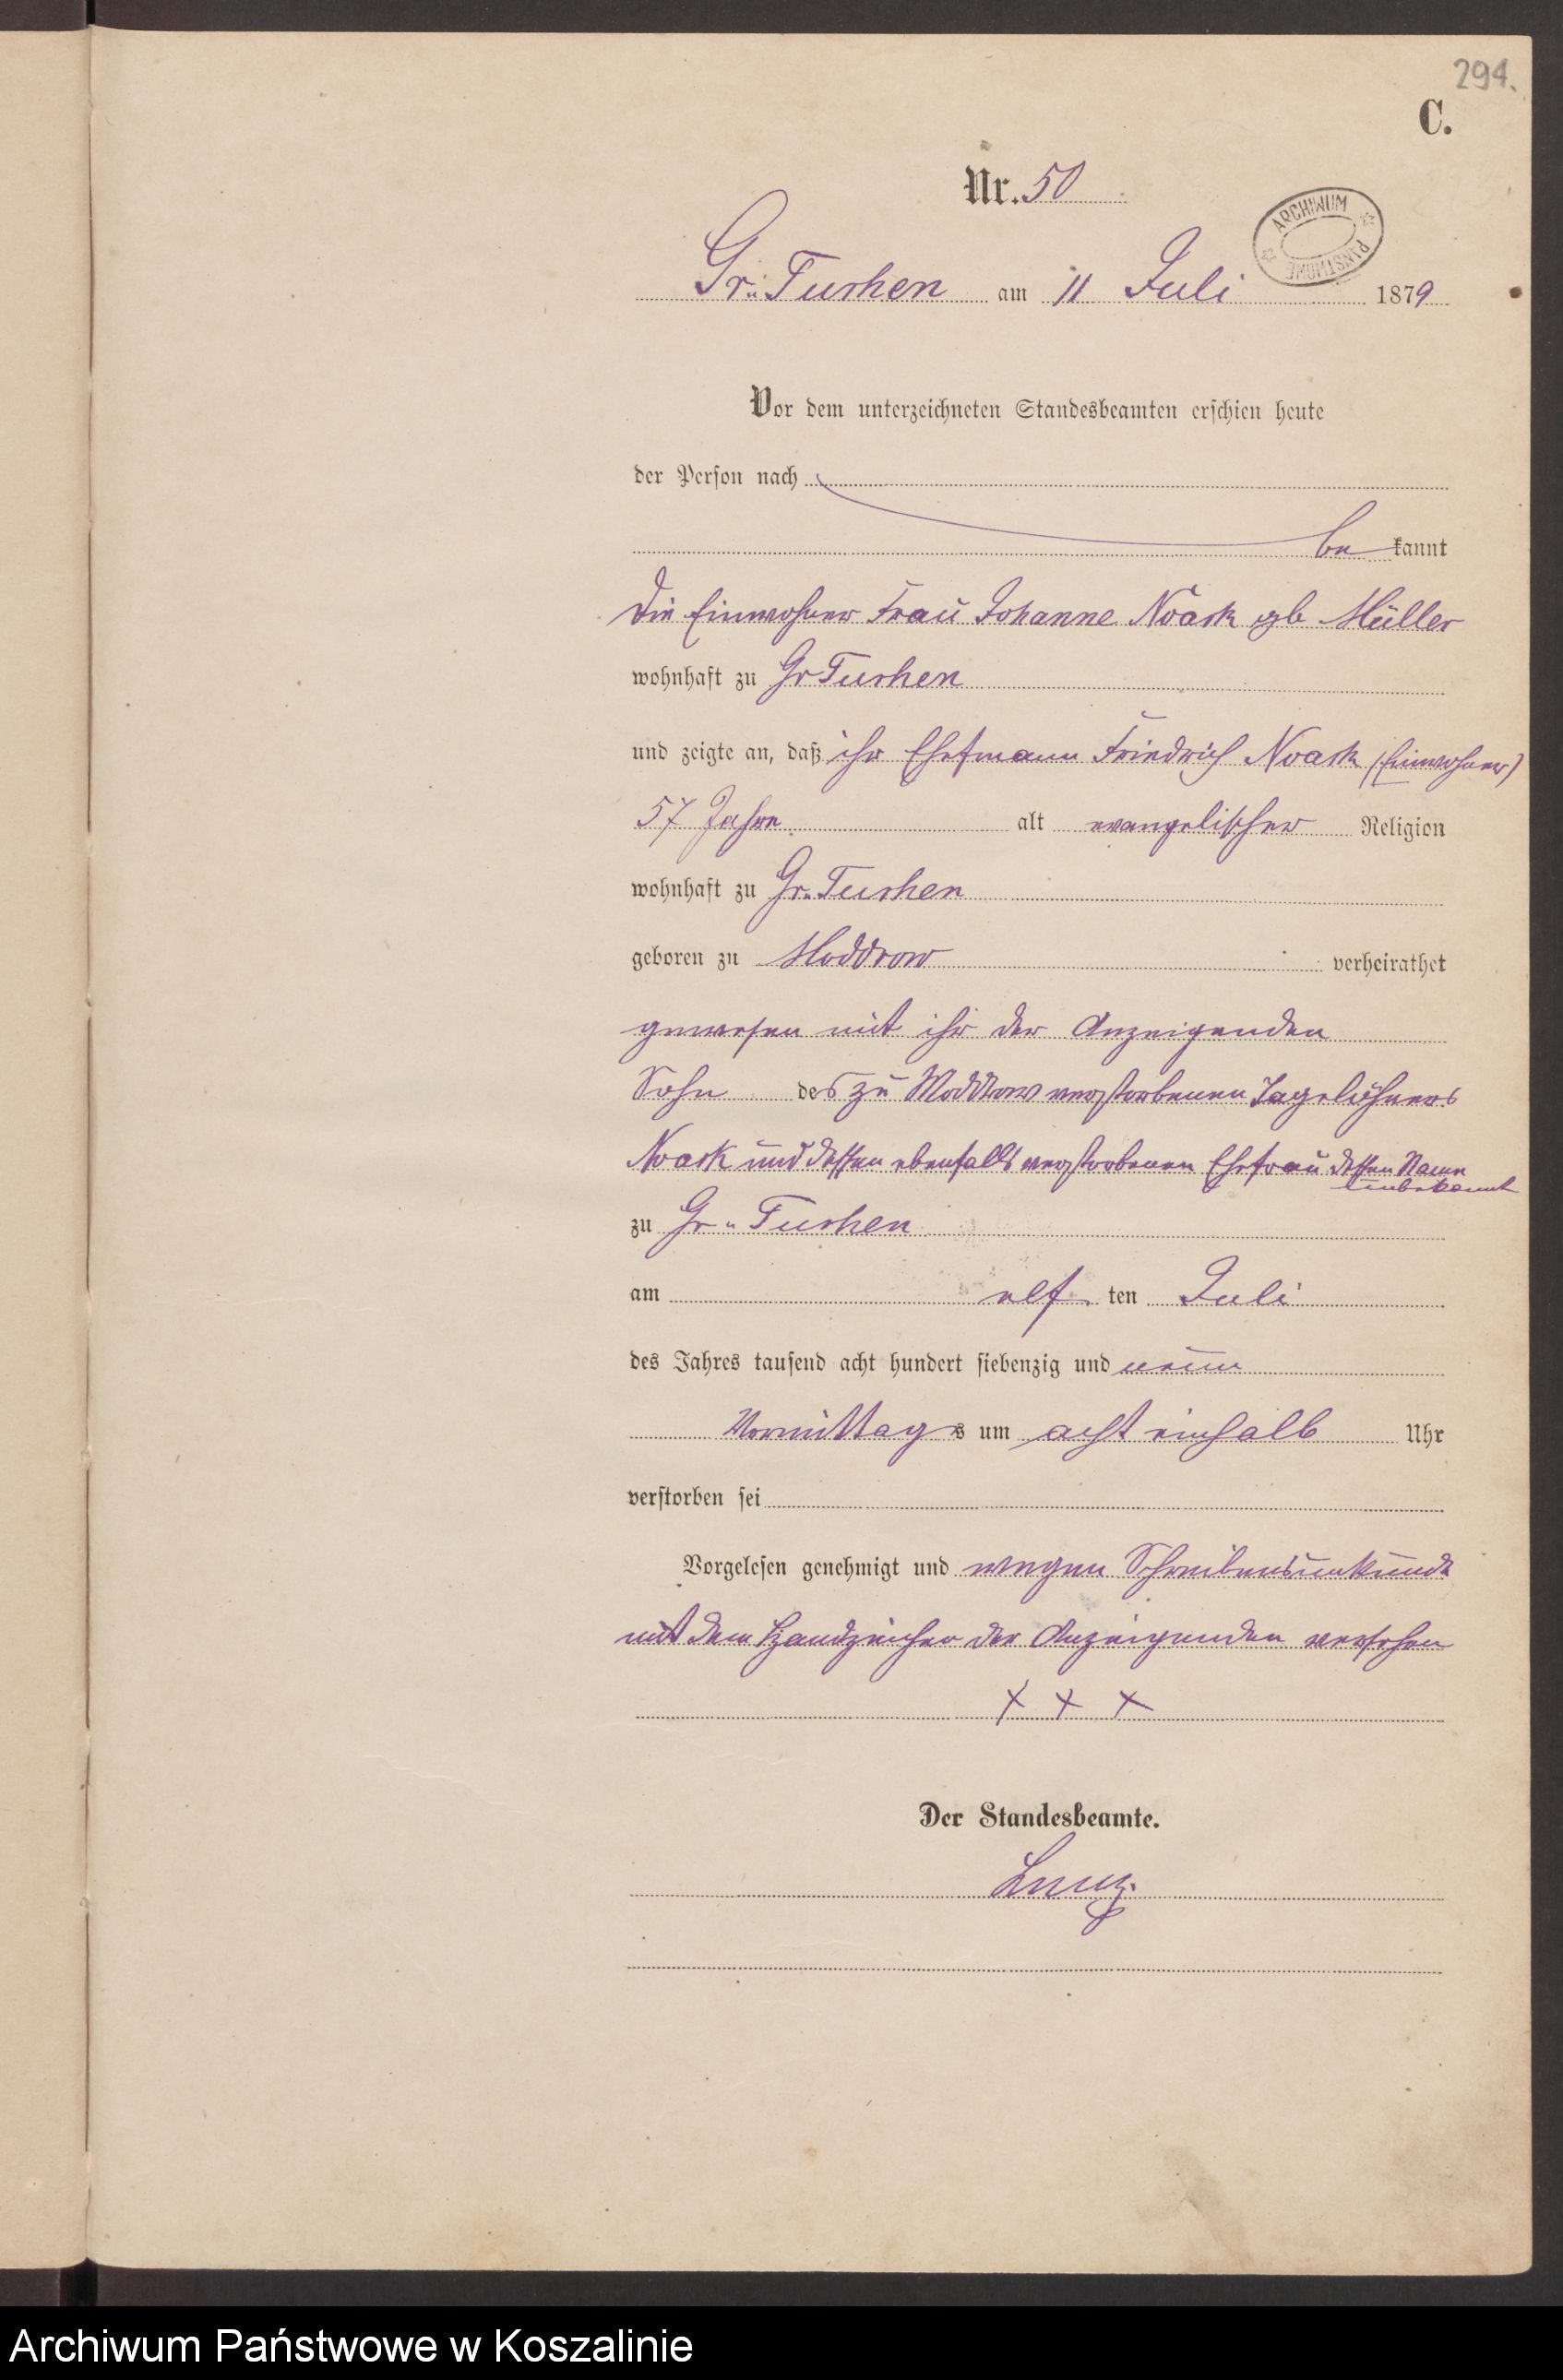 294.
C.
Nr. 50
ARCHIWUM PAŃSTWOWE
Gr. Tuchen am 11 Juli 1879
Vor dem unterzeichneten Standesbeamten erschien heute
der Person nach
be kannt
die Einwohner Frau Johanne Noack geb Müller
wohnhaft zu Gr Tuchen
und zeigte an, daß ihr Ehemann Friedrich Noack (Einwohner)
57 Jahre alt evangelischer Religion
wohnhaft zu Gr. Tuchen
geboren zu Moddrow verheirathet
gewesen mit ihr der Anzeigenden
Sohn des zu Moddrow verstorbenen Tagelöhners
Noack und dessen ebenfalls verstorbenen Ehefrau dessen Name
unbekannt
zu Gr. Tuchen
am elf ten Juli
des Jahres tausend acht hundert siebenzig und neun
Vormittags um acht einhalb Uhr
verstorben sei
Vorgelesen genehmigt und wegen Schreibensunkunde
mit dem Handzeichen der Anzeigenden versehen
+ + +
Der Standesbeamte.
Archiwum Państwowe w Koszalinie